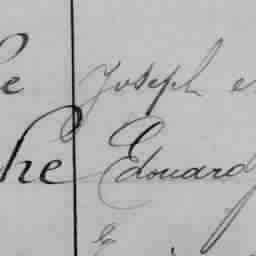 e Joseph e
he Edouard